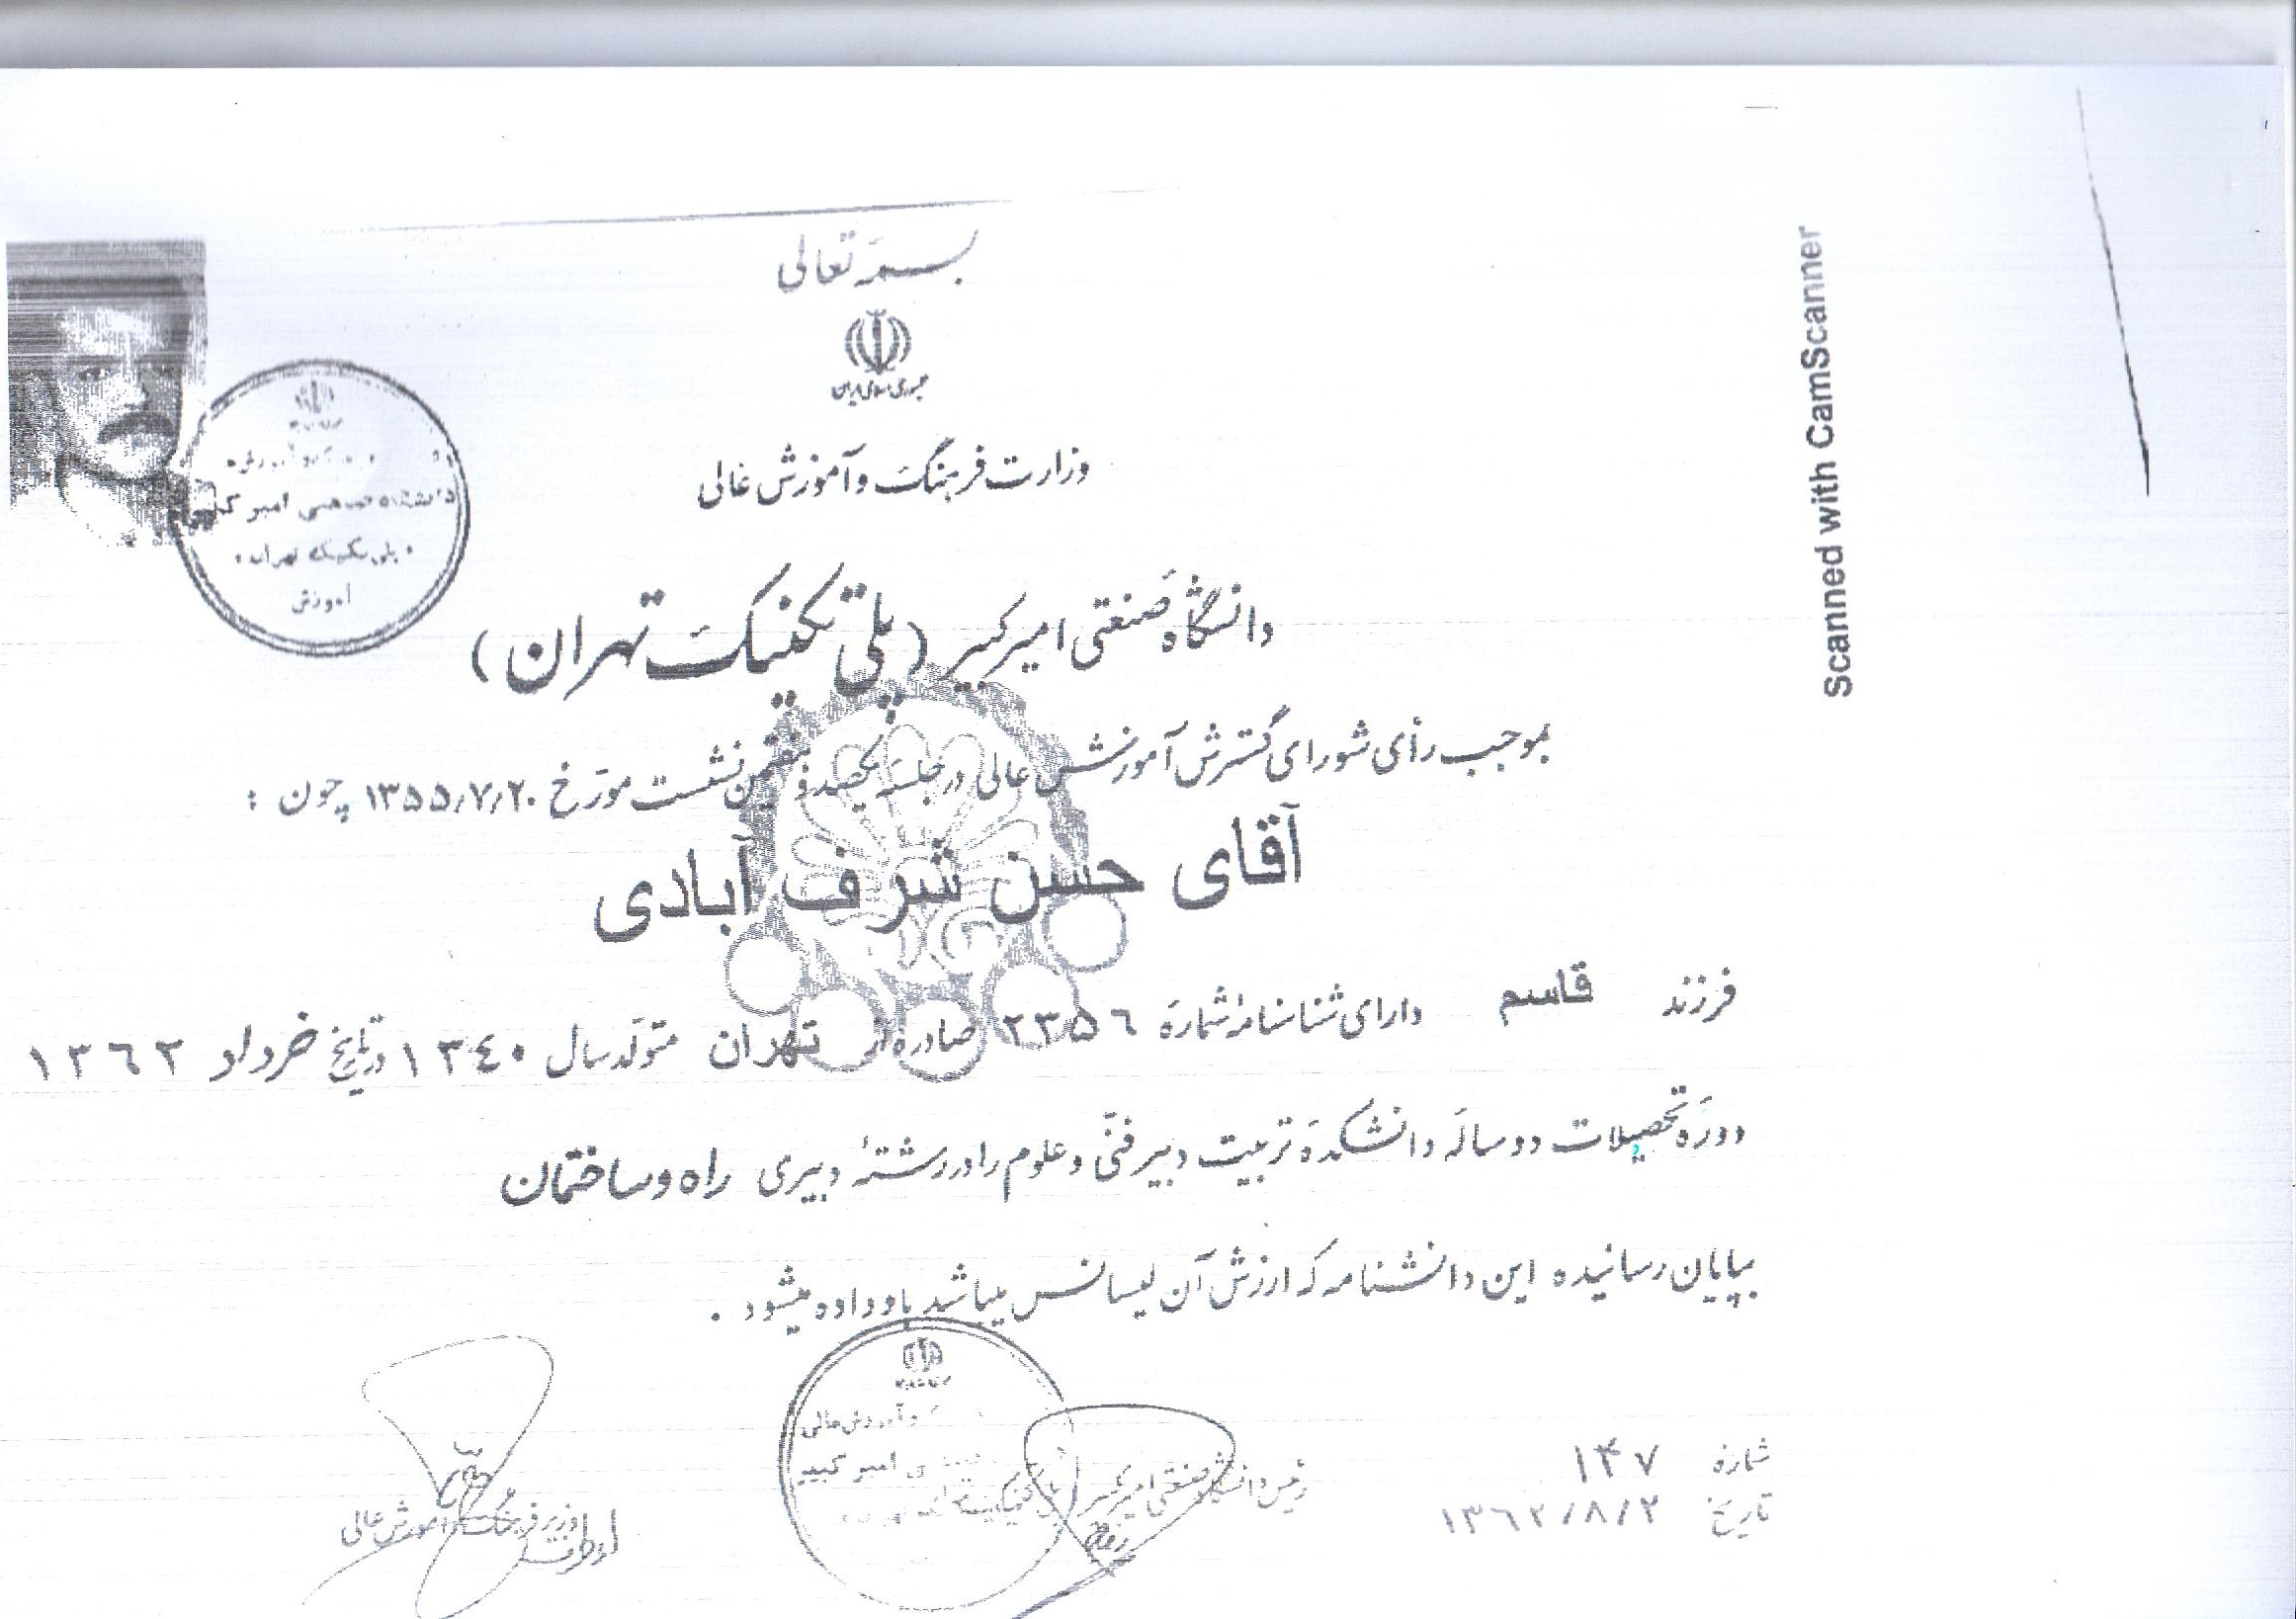 بسمه تعالی
جمهوری اسلامی ایران
وزارت فرهنگ و آموزش عالی
دانشگاه صنعتی امیرکبیر (پلی تکنیک تهران)
بموجب رأی شورای گسترش آموزش عالی در جلسه یکصد و هفتمین نشست مورخ ۱۳۵۵٫۷٫۲۰ چون :
آقای حسن شرف آبادی
فرزند قاسم دارای شناسنامه شماره ۲۳۵۶ صادره از تهران متولد سال ۱۳۴۰ در تاریخ خرداد ۱۳۶۲
دوره تحصیلات دو ساله دانشکده تربیت دبیر فنی و علوم را در رشته دبیری راه و ساختمان
بپایان رسانیده این دانشنامه که ارزش آن لیسانس میباشد باو داده میشود .
شماره ۱۴۷
تاریخ ۱۳۶۲/۸/۲
رئیس دانشگاه صنعتی امیرکبیر (پلی تکنیک تهران)
وزیر فرهنگ و آموزش عالی
از طرف
دانشگاه صنعتی امیر کبیر
پلی تکنیک تهران
آموزش
و آموزش عالی
امیر کبیر
Scanned with CamScanner